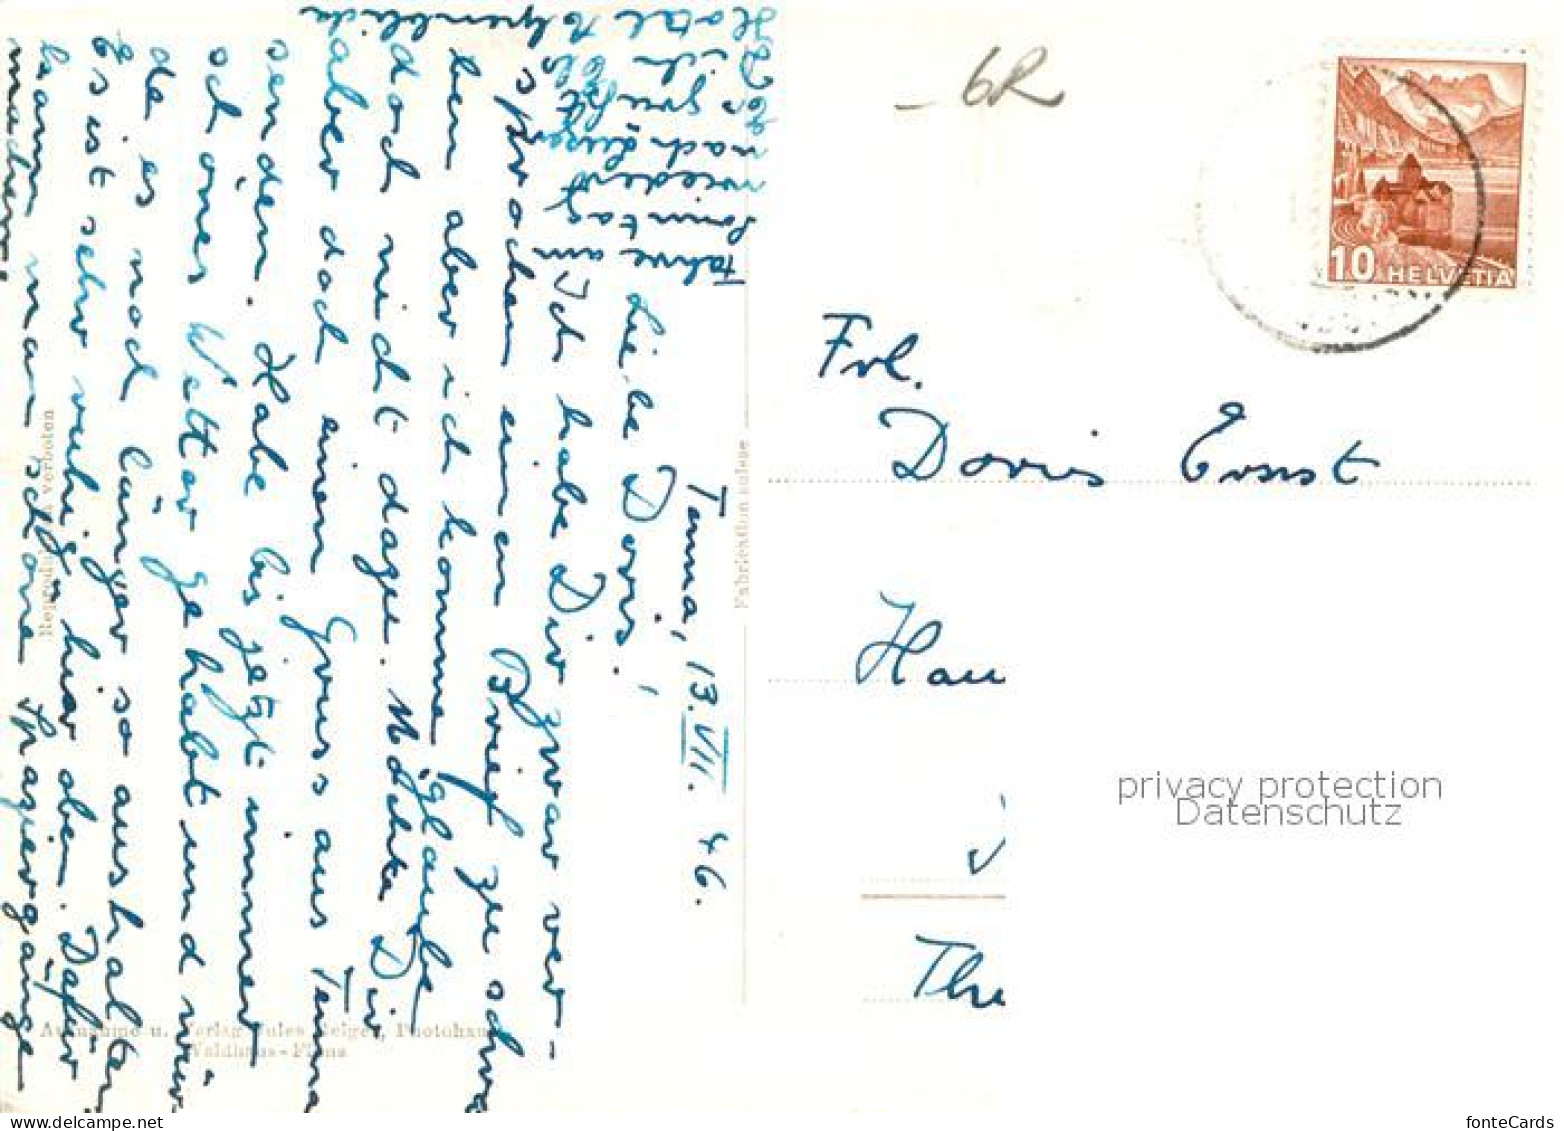 Tenna, 13. VII. 46.
Liebe Doris!
Ich habe Dir zwar ver-
sprochen einen Brief zu schrei
ben aber ich komme, glaube
doch nicht dazu. Möchte Dir
aber doch einen Gruss aus Tenna
senden. Habe bis jetzt immer
schönes Wetter gehabt und wür
de es noch länger so aushalten
Es ist sehr ruhig hier oben. Dafür
kann man schöne Spaziergänge
machen.
Fahre am
Sonntag
wieder
nach
Es grüsst
Dich
Hotel Alpenblick
Reproduktion verboten
Aufnahme u. Verlag Jules Geiger, Photohaus
Waldhaus-Flims
Fabrication suisse
6R
10 HELVETIA
Frl.
Doris Ernst
Hau
Th
privacy protection
Datenschutz
www.delcampe.net
fonteCards